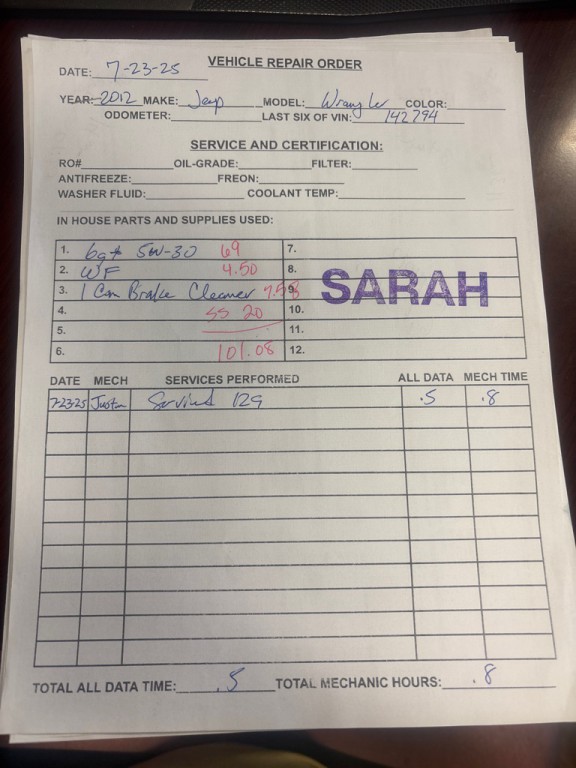 VEHICLE REPAIR ORDER
DATE: 7-23-25
YEAR: 2012 MAKE: Jeep MODEL: Wrangler COLOR:
ODOMETER: LAST SIX OF VIN: 142794
SERVICE AND CERTIFICATION:
RO# OIL-GRADE: FILTER:
ANTIFREEZE: FREON:
WASHER FLUID: COOLANT TEMP:
IN HOUSE PARTS AND SUPPLIES USED:
1. 6qt 5W-30 69 7.
2. WF 4.50 8.
3. 1 Can Brake Cleaner 7.58 9.
SARAH
4. SS 20 10.
5. 11.
6. 101.08 12.
DATE MECH SERVICES PERFORMED ALL DATA MECH TIME
7-23-25 Justin .5 .8
TOTAL ALL DATA TIME: .5 TOTAL MECHANIC HOURS: .8